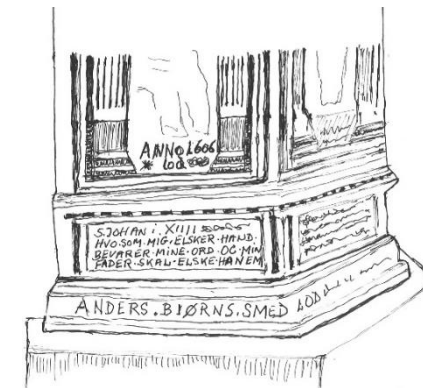 ANNO 1606
S. JOHAN i. XIIII
HVO.SOM.MIG.ELSKER.HAND.
BEVARER.MINE.ORD.OC.MIN
FADER.SKAL.ELSKE.HANEM
ANDERS.BIØRNS.SMED LOD